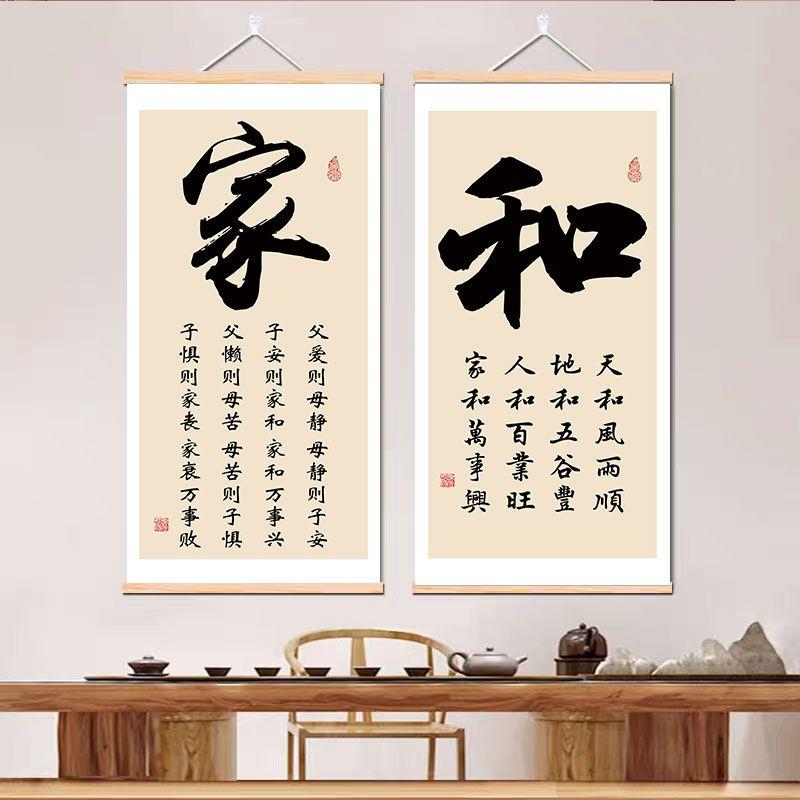 家
父爱则母静母静则子安
子安则家和家和万事兴
父懒则母苦母苦则子惧
子惧则家丧家衰万事败
和
天和風雨順
地和五谷豐
人和百業旺
家和萬事興